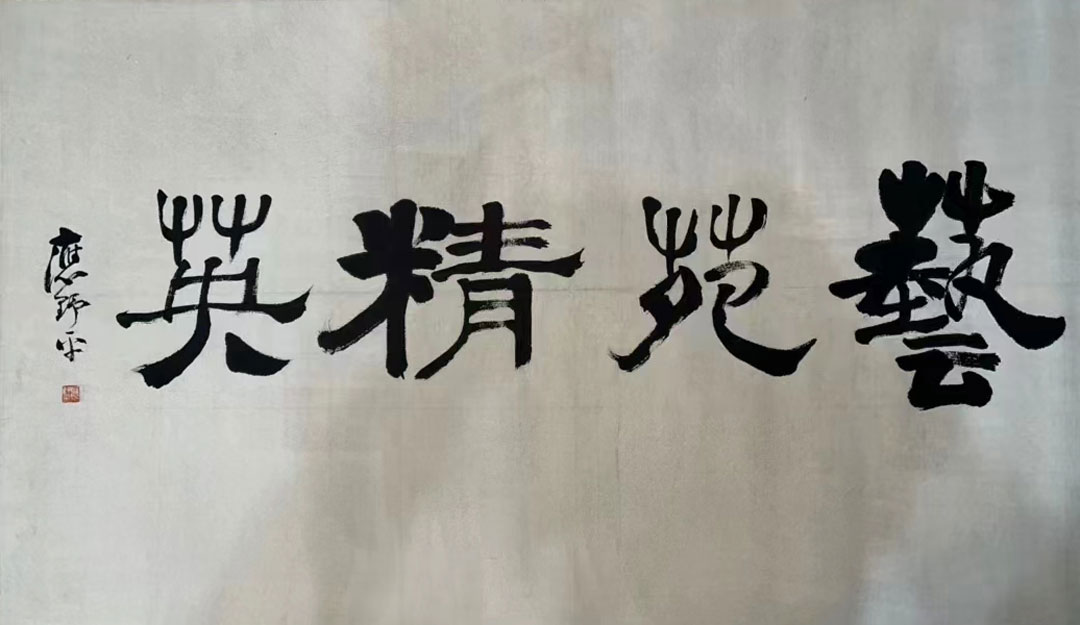 藝苑精英
應野平